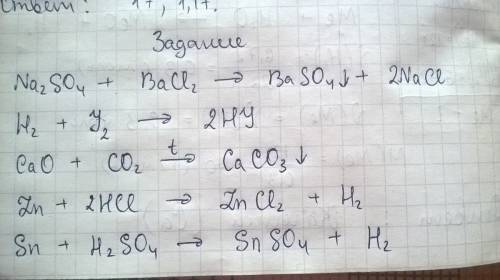 Ответ: 17, 1,17.
Задание
Na₂SO₄ + BaCl₂ → BaSO₄↓ + 2NaCl
H₂ + Y₂ → 2HY
CaO + CO₂ t→ CaCO₃↓
Zn + 2HCl → ZnCl₂ + H₂
Sn + H₂SO₄ → SnSO₄ + H₂